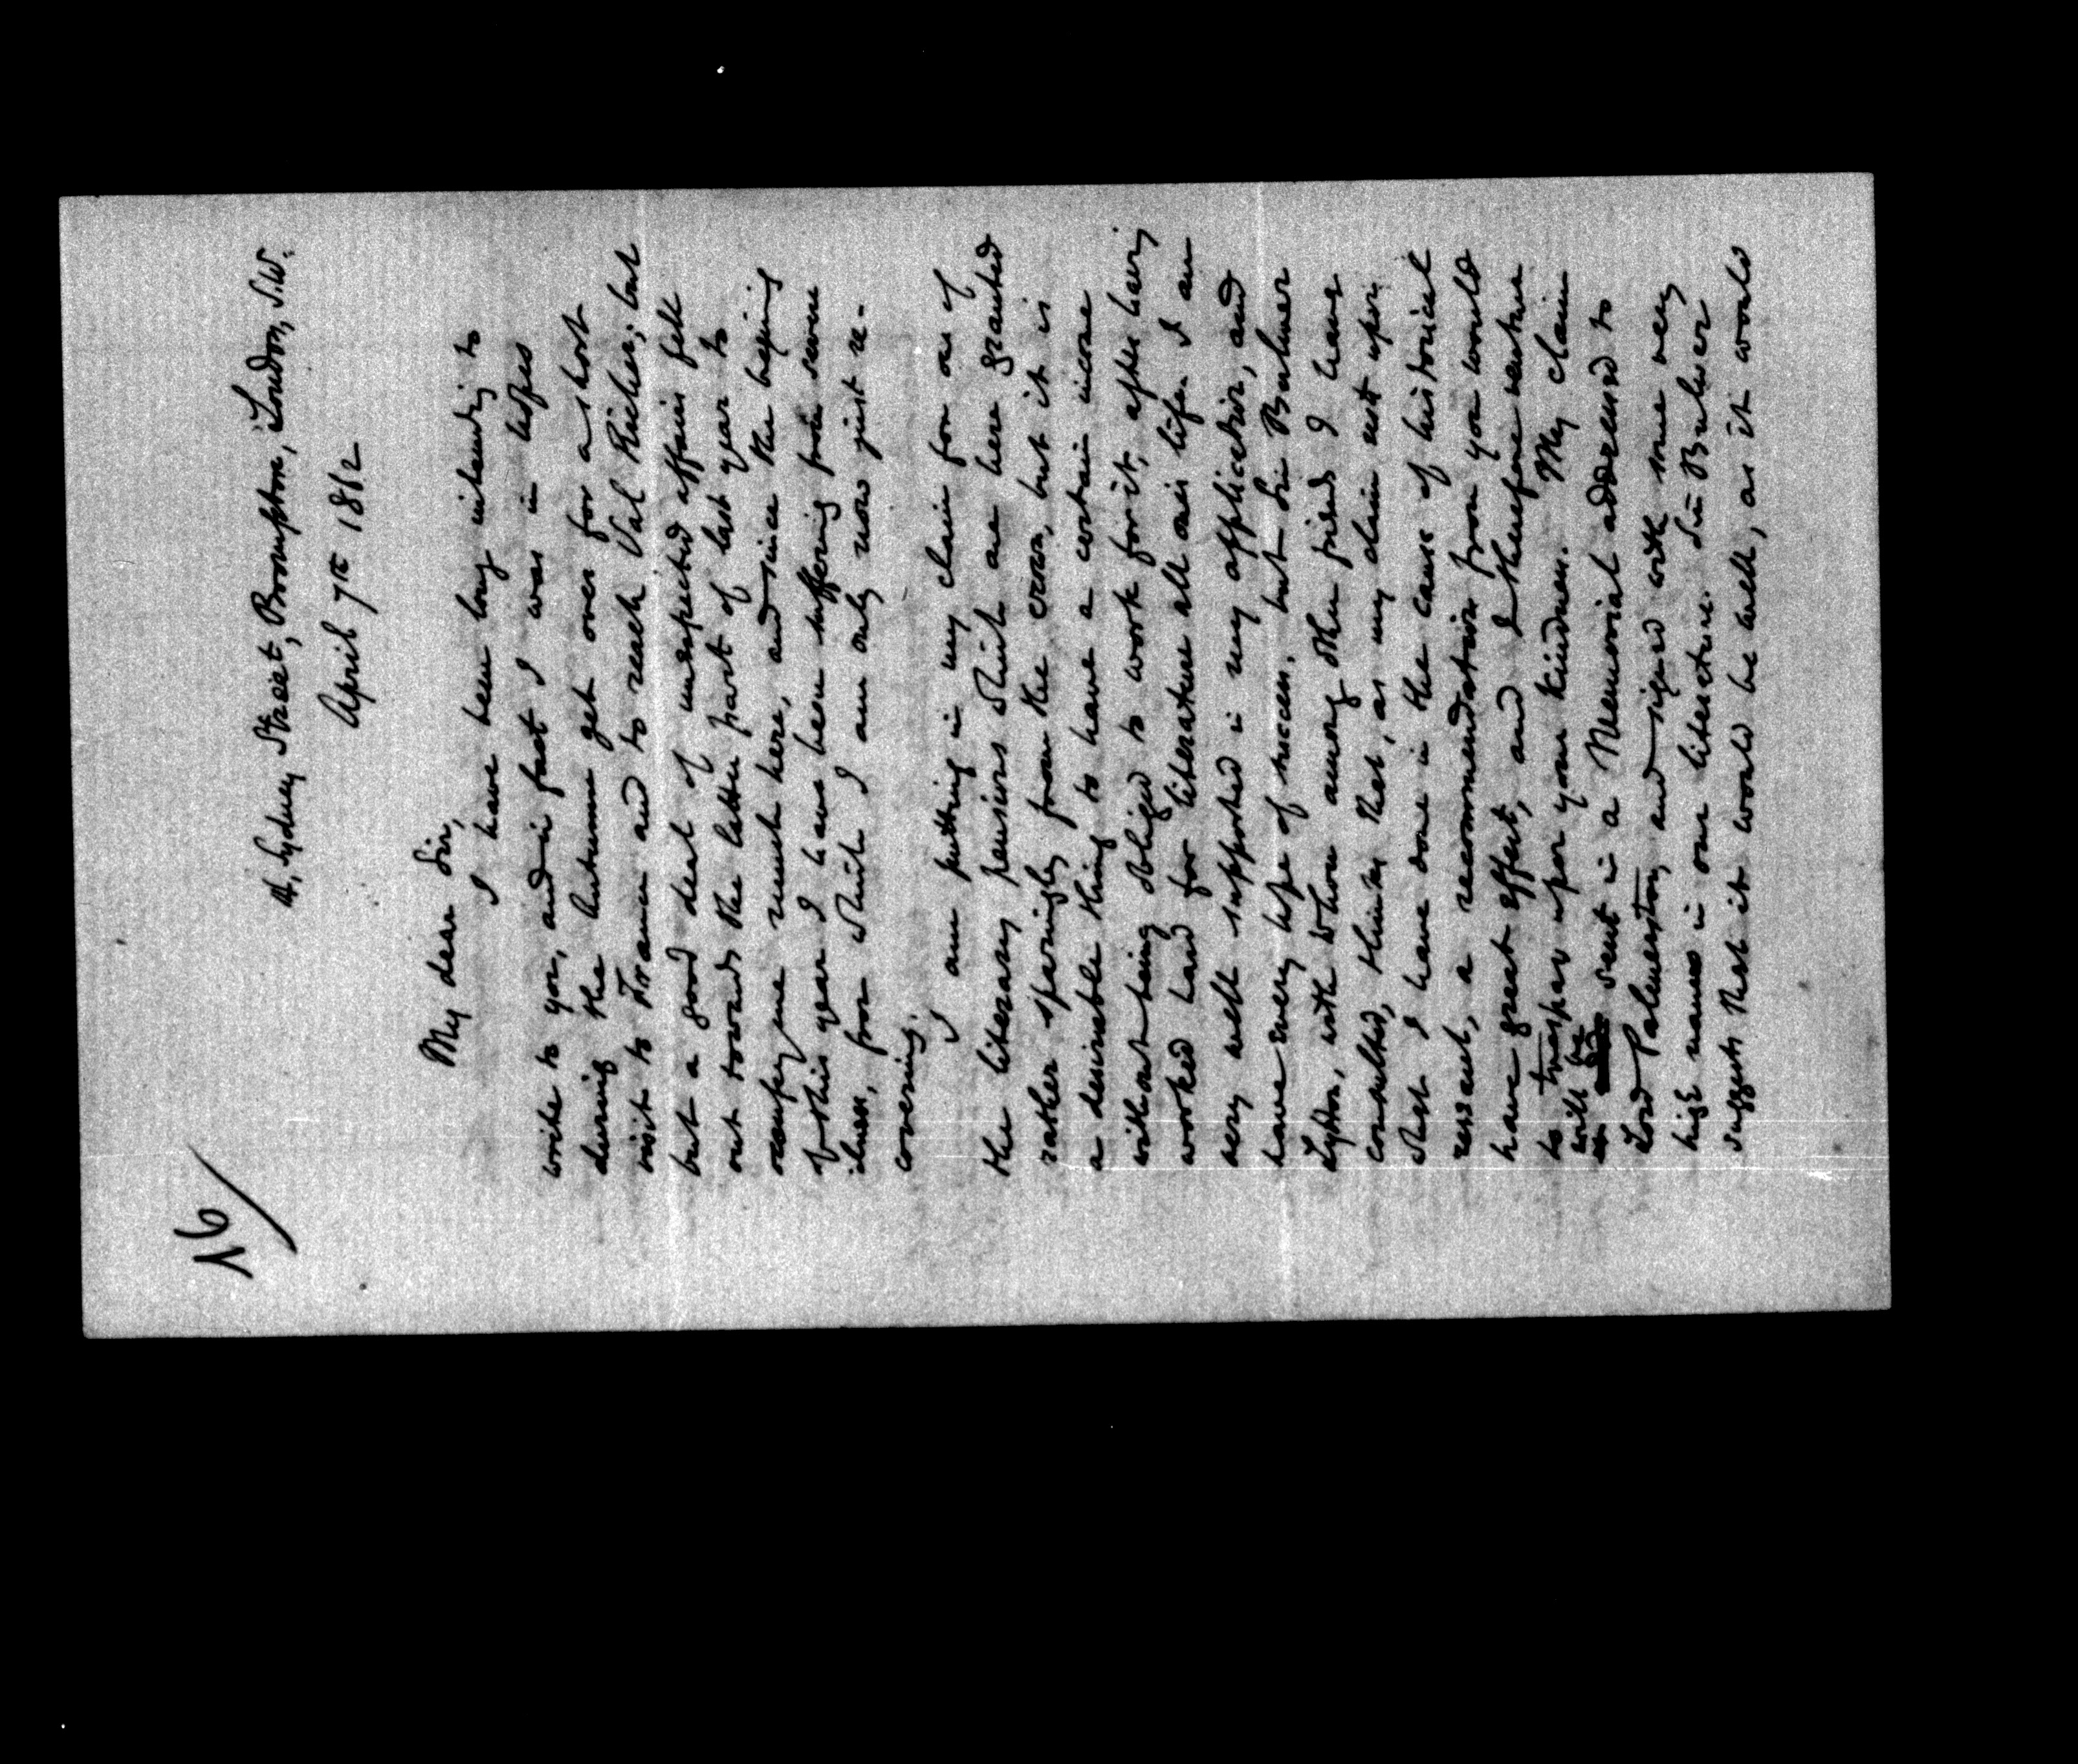 16/
14, Sydney Street, Brompton, London, S.W.
April 7th 1862
My dear Sir,
I have been long intending to
write to you, and in fact I was in hopes
during the Autumn get over for a short
visit to France and to reach Val Richer; but
but a good deal of unexpected affairs fell
out towards the latter part of last year to
occupy me much here, and since the beginning
of this year I have been suffering from severe
illness, from which I am only now just re-
covering.
I am putting in my claim for one of
the literary pensions which are here granted
rather sparingly from the crown, but it is
a desirable thing to have a certain income
without being obliged to work for it, after having
worked hard for literature all one's life. I am
very well supported in my application, and
have every hope of success, but Sir Bulwer
Lytton, with whom among other friends I have
consulted, thinks that, as my claim rests upon
what I have done in the cause of historical
research, a recommendation from you would
have great effect, and I therefore venture
to trespass upon your kindness. My claim
will be
sent in a Memorial addressed to
Lord Palmerston, and signed with some very
high names in our literature. Sir Bulwer
suggests that it would be well, as it would